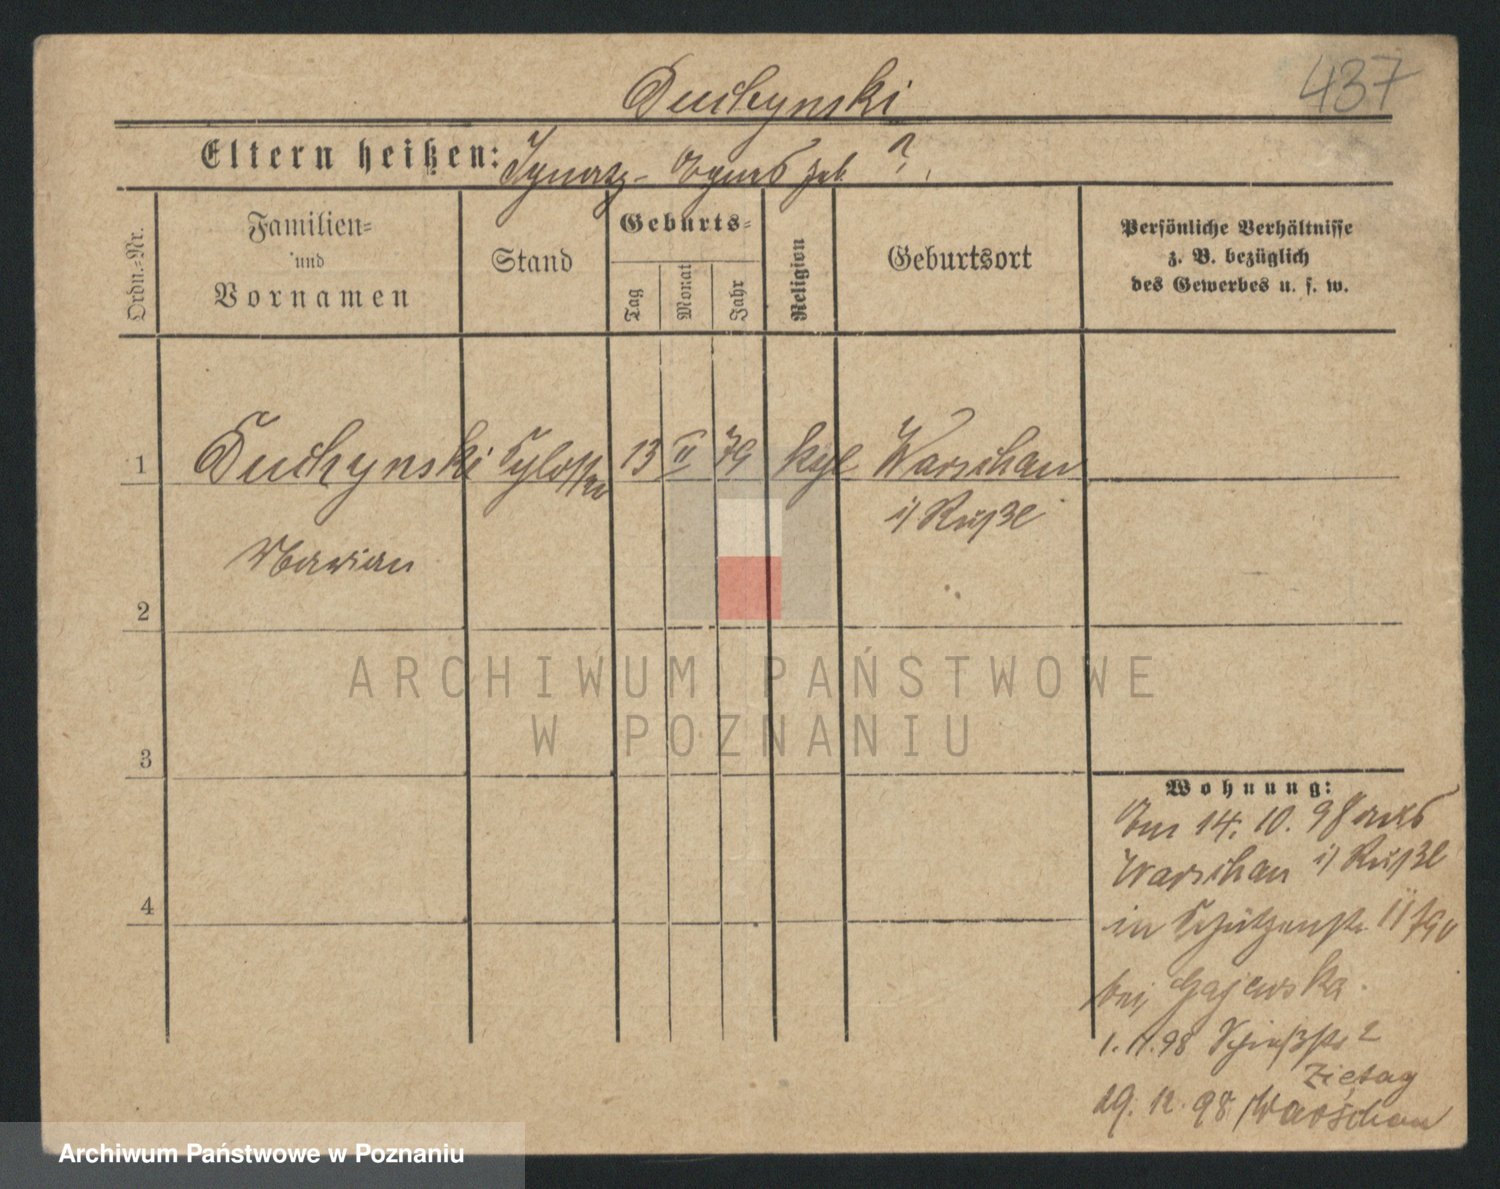 Duchynski
437
Eltern heißen: Ignatz - Agnes geb. ?
Ordn.-Nr.
Familien-
und
Vornamen
Stand
Geburts-
Tag
Monat
Jahr
Religion
Geburtsort
Persönliche Verhältnisse
z. B. bezüglich
des Gewerbes u. s. w.
1
Duchynski Schlosser 13 II 79 kgl Warschau
i/ Rußl
Marian
2
ARCHIWUM PAŃSTWOWE
W POZNANIU
3
Wohnung:
Am 14. 10. 98 aus
Warschau i/ Rußl
in Schützenstr. 11
bei Gajewska.
1. 11. 98 Schießstr 2
Zietag
29. 12. 98 Warschau
4
Archiwum Państwowe w Poznaniu